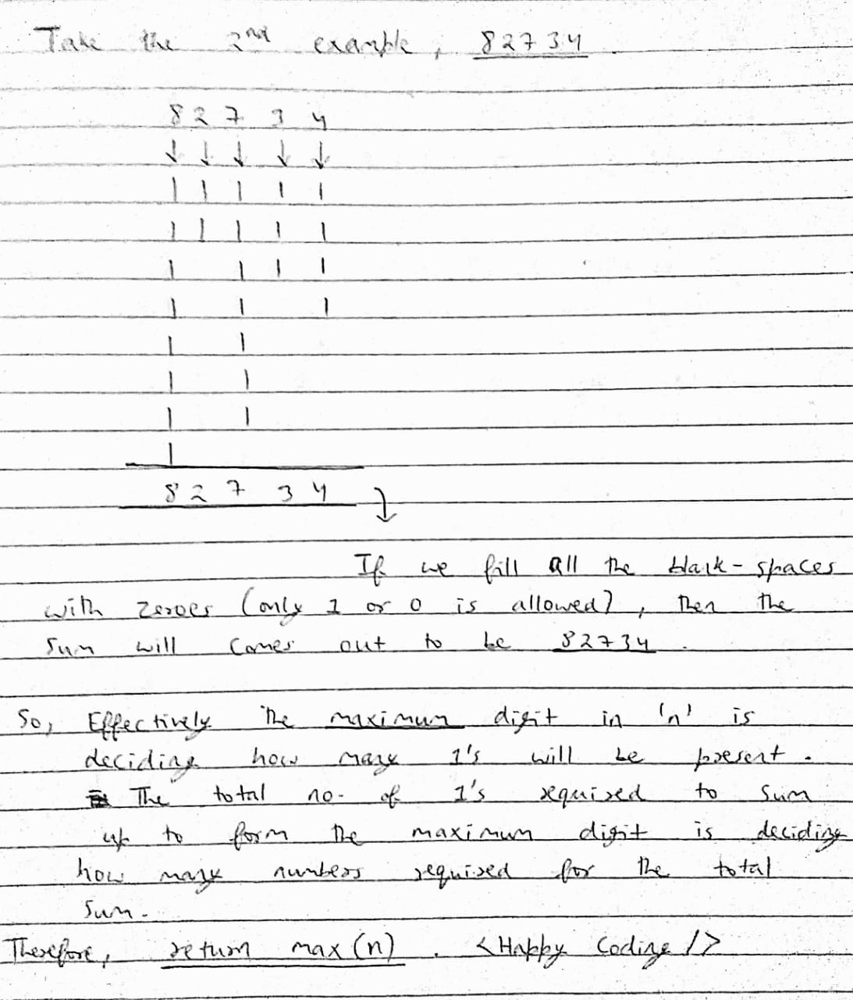 Take the 2nd example, 82734.
8 2 7 3 4
↓ ↓ ↓ ↓ ↓
1 1 1 1 1
1 1 1 1 1
1 1 1 1
1 1 1
1 1
1 1
1 1
1
8 2 7 3 4
If we fill all the blank-spaces
with zeroes (only 1 or 0 is allowed), then the
sum will comes out to be 82734.
So, Effectively the maximum digit in 'n' is
deciding how many 1's will be present.
The total no. of 1's required to sum
up to form the maximum digit is deciding
how many numbers required for the total
sum.
Therefore, return max(n). <Happy Coding />